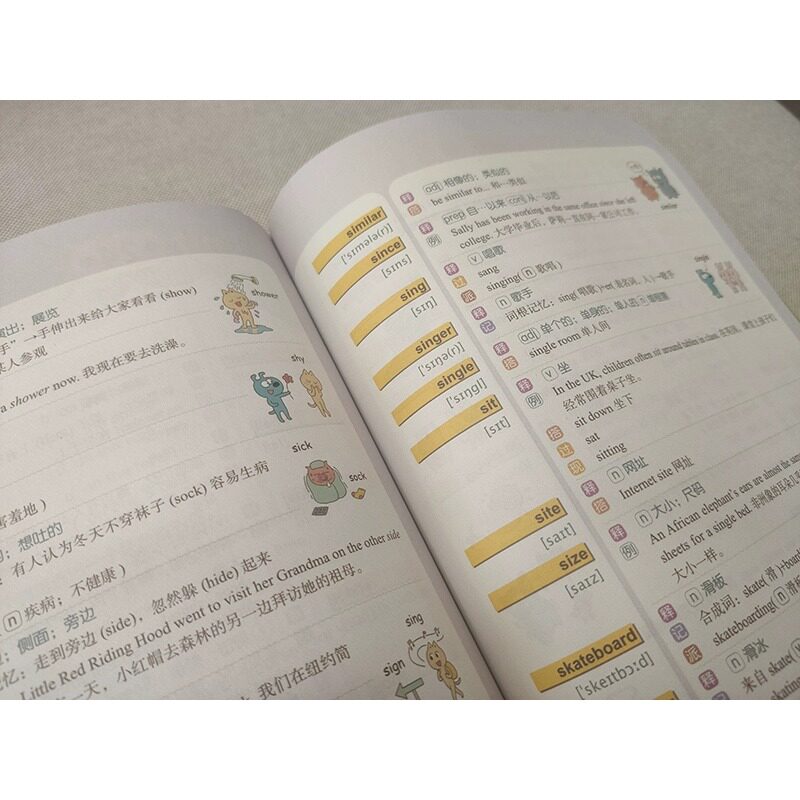 演出；展览
shower
手”→手伸出来给大家看看 (show)
某人参观
a shower now. 我现在要去洗澡。
shy
sick
sock
害羞地）
容易生病
想吐的
有人认为冬天不穿袜子 (sock)
n 疾病；不健康）
侧面；旁边
忆：走到旁边 (side)，忽然躲 (hide) 起来
Little Red Riding Hood went to visit her Grandma on the other side
一天，小红帽去森林的另一边拜访她的祖母。
sing
sign
我们在纽约简
similar
['sɪmələ(r)]
释 adj 相像的；类似的
搭 be similar to... 和…类似
similar
since
[sɪns]
释 prep 自…以来 conj 从…以后
例 Sally has been working in the same office since she left
college. 大学毕业后，萨莉一直在同一家公司工作。
sing
[sɪŋ]
释 v 唱歌
过 sang
派 singing(n 歌唱)
singer
['sɪŋə(r)]
释 n 歌手
记 词根记忆：sing(唱歌)+er
single
['sɪŋgl]
释 adj 单个的；单身的；单人的
搭 single room 单人间
single
sit
[sɪt]
释 v 坐
例 In the UK, children often sit around tables in class.
经常围着桌子坐。
搭 sit down 坐下
过 sat
现 sitting
site
[saɪt]
释 n 网址
搭 Internet site 网址
size
[saɪz]
释 n 大小；尺码
例 An African elephant's ears are almost the same
sheets for a single bed. 非洲象的耳朵几乎
大小一样。
skateboard
['skeɪtbɔːd]
释 n 滑板
记 合成词：skate(滑)+board
派 skateboarding(n 滑板
释 n 滑冰
记 来自 skate(v